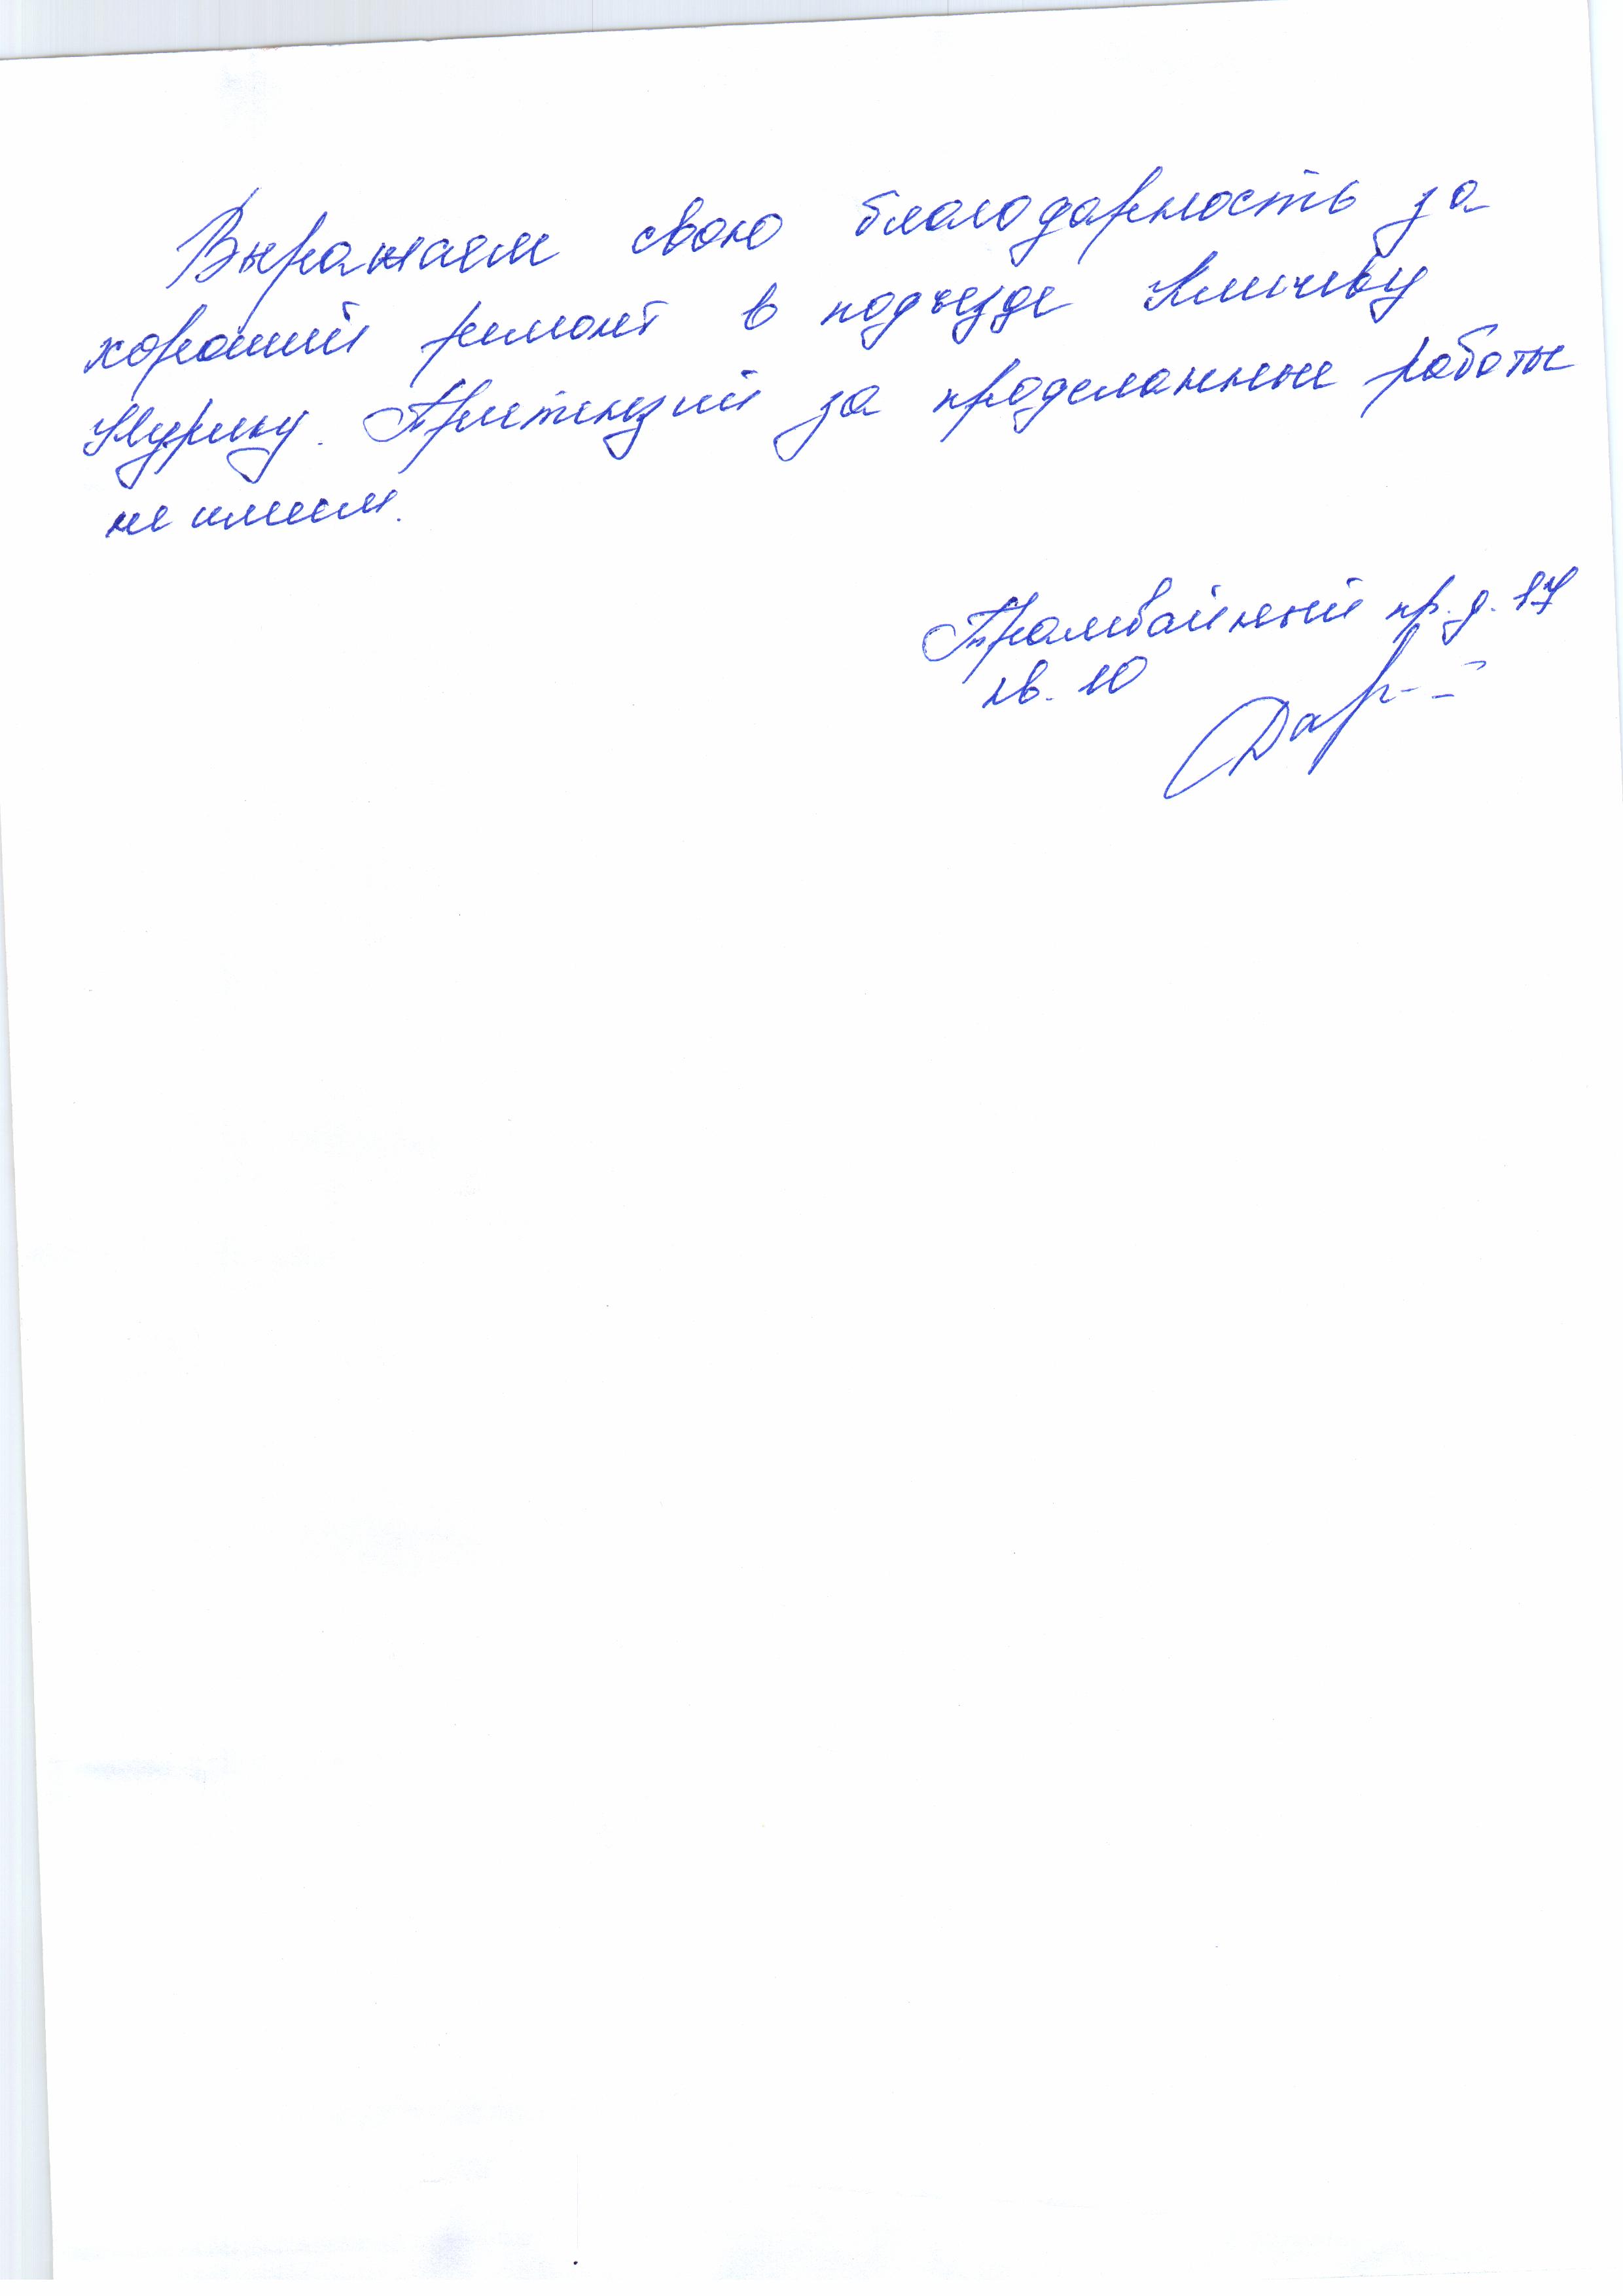 Выражаем свою благодарность за
хороший ремонт в подъезде Кличеву
Нурику. Притензий за проделанные работы
не имеем.
Трамвайный пр. д. 17
кв. 10